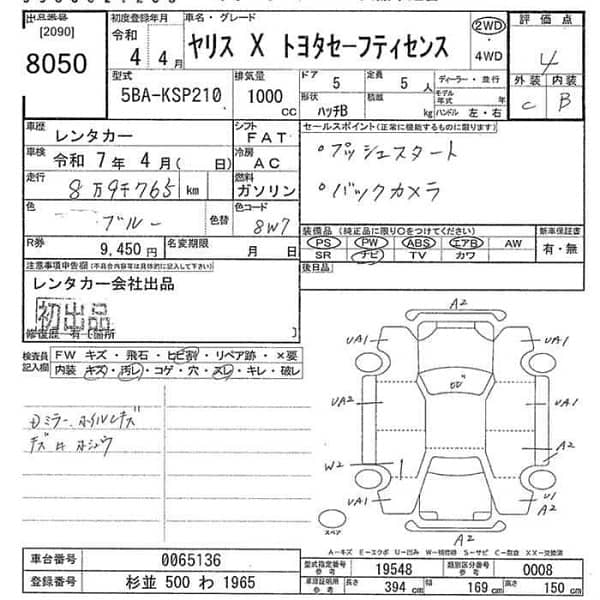 出品番号 初度登録年月 車名・グレード 評価点
[2090] 令和 ヤリス X トヨタセーフティセンス 2WD 4
8050 4 4月 4WD 外装 内装
型式 排気量 ドア 5 定員 5人 ディーラー・並行 C B
5BA-KSP210 1000 CC 形状 ハッチB 積載 kg モデル年式 年式 ハンドル 左・右
車歴 レンタカー シフト FAT セールスポイント(正常に機能するものに限ります)
車検 令和 7年 4月( 日) 冷房 AC ・プッシュスタート
走行 8万9千765 km 燃料 ガソリン ・バックカメラ
色 ブルー 色替 色コード 8W7
装備品(純正品に限り○をつけてください) 新車保証書
R券 9,450円 名変期限 月 日 PS PW ABS エアB AW 有・無
SR ナビ TV カワ
注意事項申告欄(不具合内容等は具体的に記入して下さい) 後日品
レンタカー会社出品
初出品
修復歴 有(箇所 )
検査員記入欄 FW キズ・飛石・ヒビ割・リペア跡・×要
内装 キズ・汚レ・コゲ・穴・スレ・キレ・破レ
Dミラー ホイルキズ
A2
UA1 UA1
UA2 UA1
W2 A2
UA1 U1
A1
A2
スペア
A-キズ E-エクボ U-凹み W-補修跡 S-サビ C-腐食 X-要交換 XX-交換済
車台番号 0065136 型式指定番号 参考 19548 類別区分番号 参考 0008
登録番号 杉並 500 わ 1965 車庫証明用 参考 長さ 394 cm 幅 169 cm 高さ 150 cm